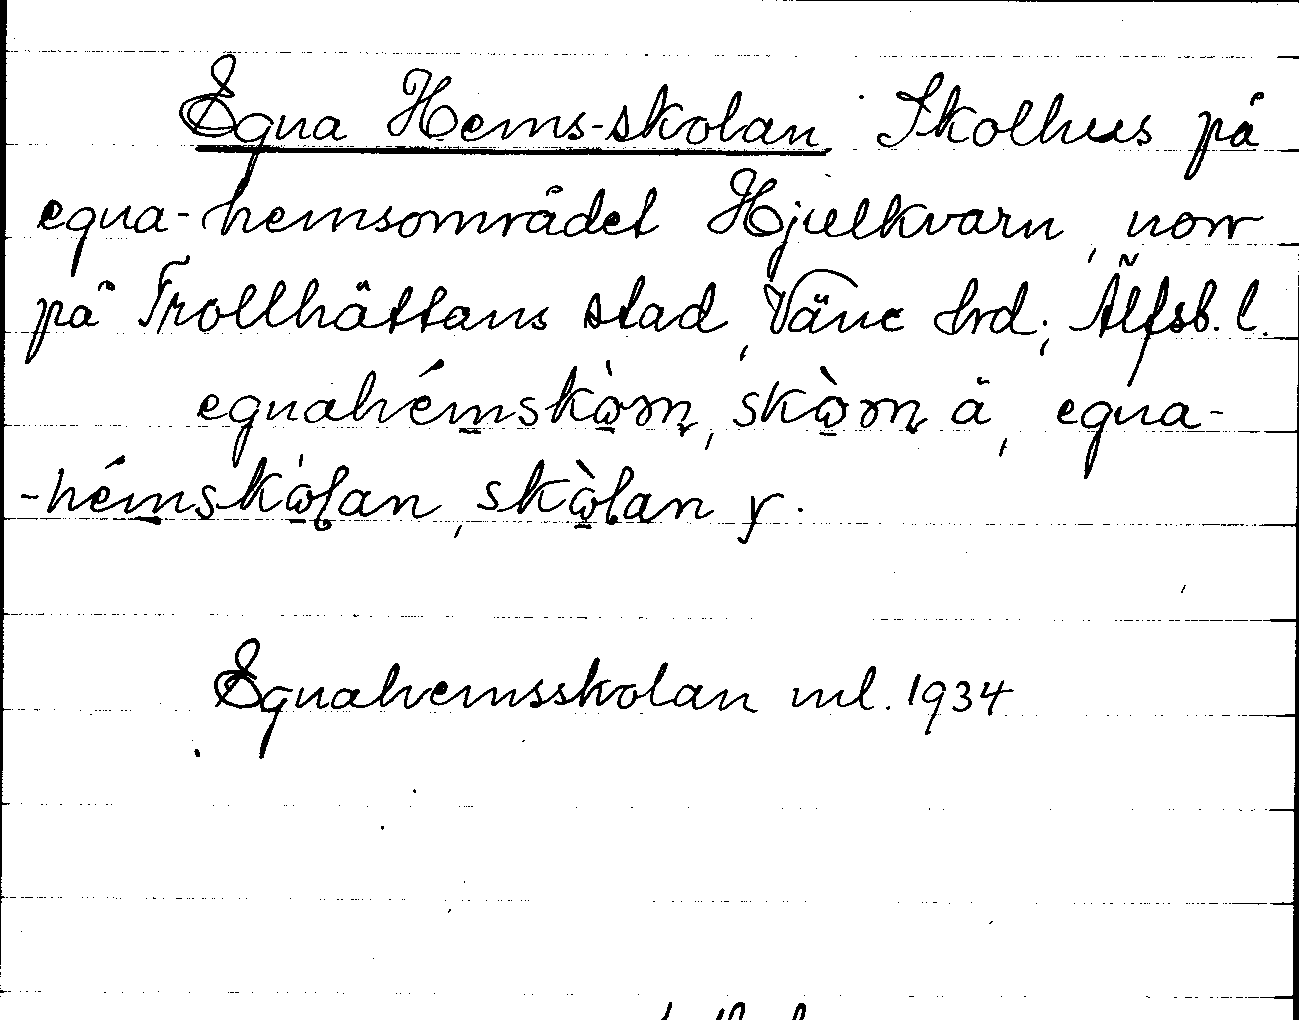 Egna Hems-skolan. Skolhus på
egna-hemsområdet Hjulkvarn, norr
på Trollhättans stad, Väne hrd; Älfsb. l.
egnahémskò̱m, skò̱m ä, egna-
-hémskò̱lan, skò̱lan y.
Egnahemsskolan ml. 1934